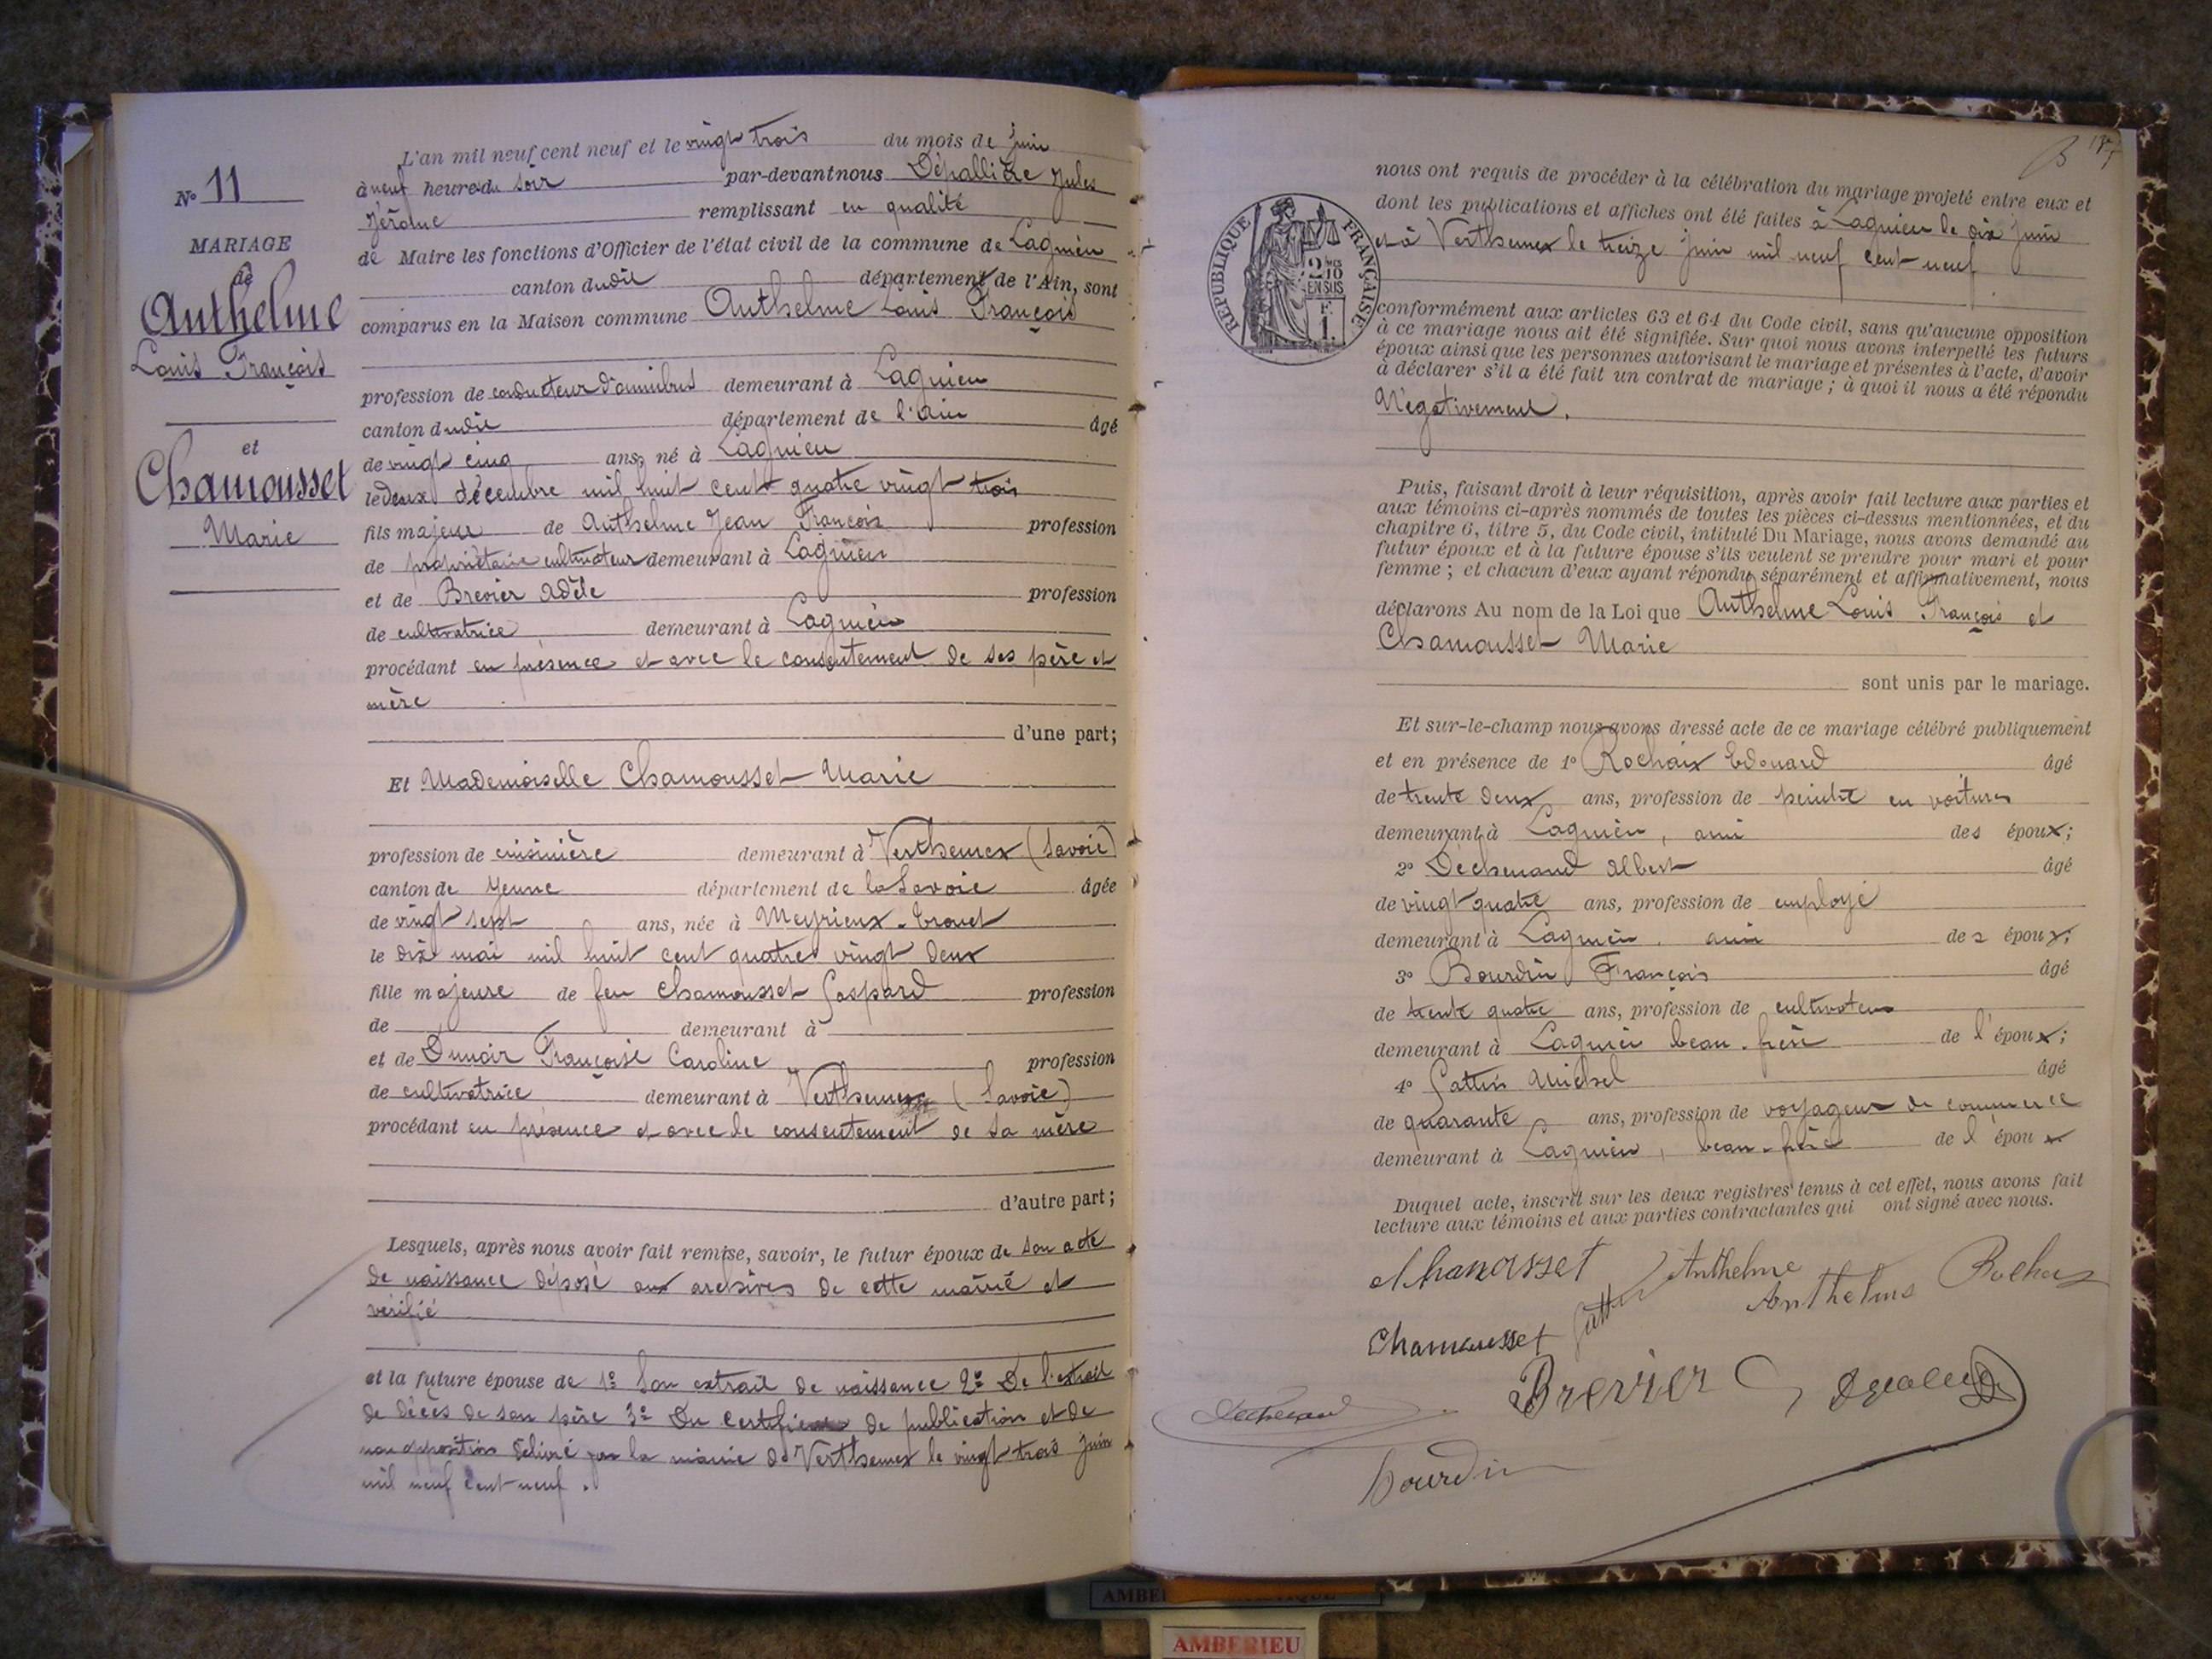 L'an mil neuf cent neuf et le vingt trois du mois de Juin
à neuf heures du soir par-devant nous Dépallière Jules
Jérôme remplissant en qualité
de Maire les fonctions d'Officier de l'état civil de la commune de Lagnieu
canton dudit département de l'Ain, sont
comparus en la Maison commune Anthelme Louis François
profession de conducteur d'omnibus demeurant à Lagnieu
canton dudit département de l'Ain âgé
de vingt cinq ans, né à Lagnieu
le deux décembre mil huit cent quatre vingt trois
fils majeur de Anthelme Jean François profession
de propriétaire cultivateur demeurant à Lagnieu
et de Brevier Adèle profession
de cultivatrice demeurant à Lagnieu
procédant en présence et avec le consentement de ses père et
mère
d'une part;
Et Mademoiselle Chamousset Marie
profession de cuisinière demeurant à Verthemex (Savoie)
canton de Yenne département de la Savoie âgée
de vingt sept ans, née à Meyrieux-Trouet
le dix mai mil huit cent quatre vingt deux
fille majeure de feu Chamousset Gaspard profession
de demeurant à
et de Dunoir Françoise Caroline profession
de cultivatrice demeurant à Verthemex (Savoie)
procédant en présence et avec le consentement de sa mère
d'autre part;
Lesquels, après nous avoir fait remise, savoir, le futur époux de son acte
de naissance déposé aux archives de cette mairie et
vérifié
et la future épouse de 1º Son extrait de naissance 2º De l'extrait
de décès de son père 3º Du certificat de publication et de
non opposition délivré par la mairie de Verthemex le vingt trois juin
mil neuf cent neuf.
Nº 11
MARIAGE
de
Anthelme
Louis François
et
Chamousset
Marie
nous ont requis de procéder à la célébration du mariage projeté entre eux et
dont les publications et affiches ont été faites à Lagnieu le dix juin
et à Verthemex le treize juin mil neuf cent neuf
conformément aux articles 63 et 64 du Code civil, sans qu'aucune opposition
à ce mariage nous ait été signifiée. Sur quoi nous avons interpellé les futurs
époux ainsi que les personnes autorisant le mariage et présentes à l'acte, d'avoir
à déclarer s'il a été fait un contrat de mariage; à quoi il nous a été répondu
Négativement.
Puis, faisant droit à leur réquisition, après avoir fait lecture aux parties et
aux témoins ci-après nommés de toutes les pièces ci-dessus mentionnées, et du
chapitre 6, titre 5, du Code civil, intitulé Du Mariage, nous avons demandé au
futur époux et à la future épouse s'ils veulent se prendre pour mari et pour
femme; et chacun d'eux ayant répondu séparément et affirmativement, nous
déclarons Au nom de la Loi que Anthelme Louis François et
Chamousset Marie
sont unis par le mariage.
Et sur-le-champ nous avons dressé acte de ce mariage célébré publiquement
et en présence de 1º Rochaix Edouard âgé
de trente deux ans, profession de peintre en voitures
demeurant à Lagnieu, ami des époux;
2º Déchenaud Albert âgé
de vingt quatre ans, profession de employé
demeurant à Lagnieu, ami des époux;
3º Bourdin François âgé
de trente quatre ans, profession de cultivateur
demeurant à Lagnieu beau-frère de l'époux;
4º Gattin Michel âgé
de quarante ans, profession de voyageur de commerce
demeurant à Lagnieu, beau-frère de l'époux
Duquel acte, inscrit sur les deux registres tenus à cet effet, nous avons fait
lecture aux témoins et aux parties contractantes qui ont signé avec nous.
Anthelme
Anthelme
Chamousset
Brevier
Bourdin
RÉPUBLIQUE FRANÇAISE
2 MES
10
EN SUS
F.
1.
AMBERIEU